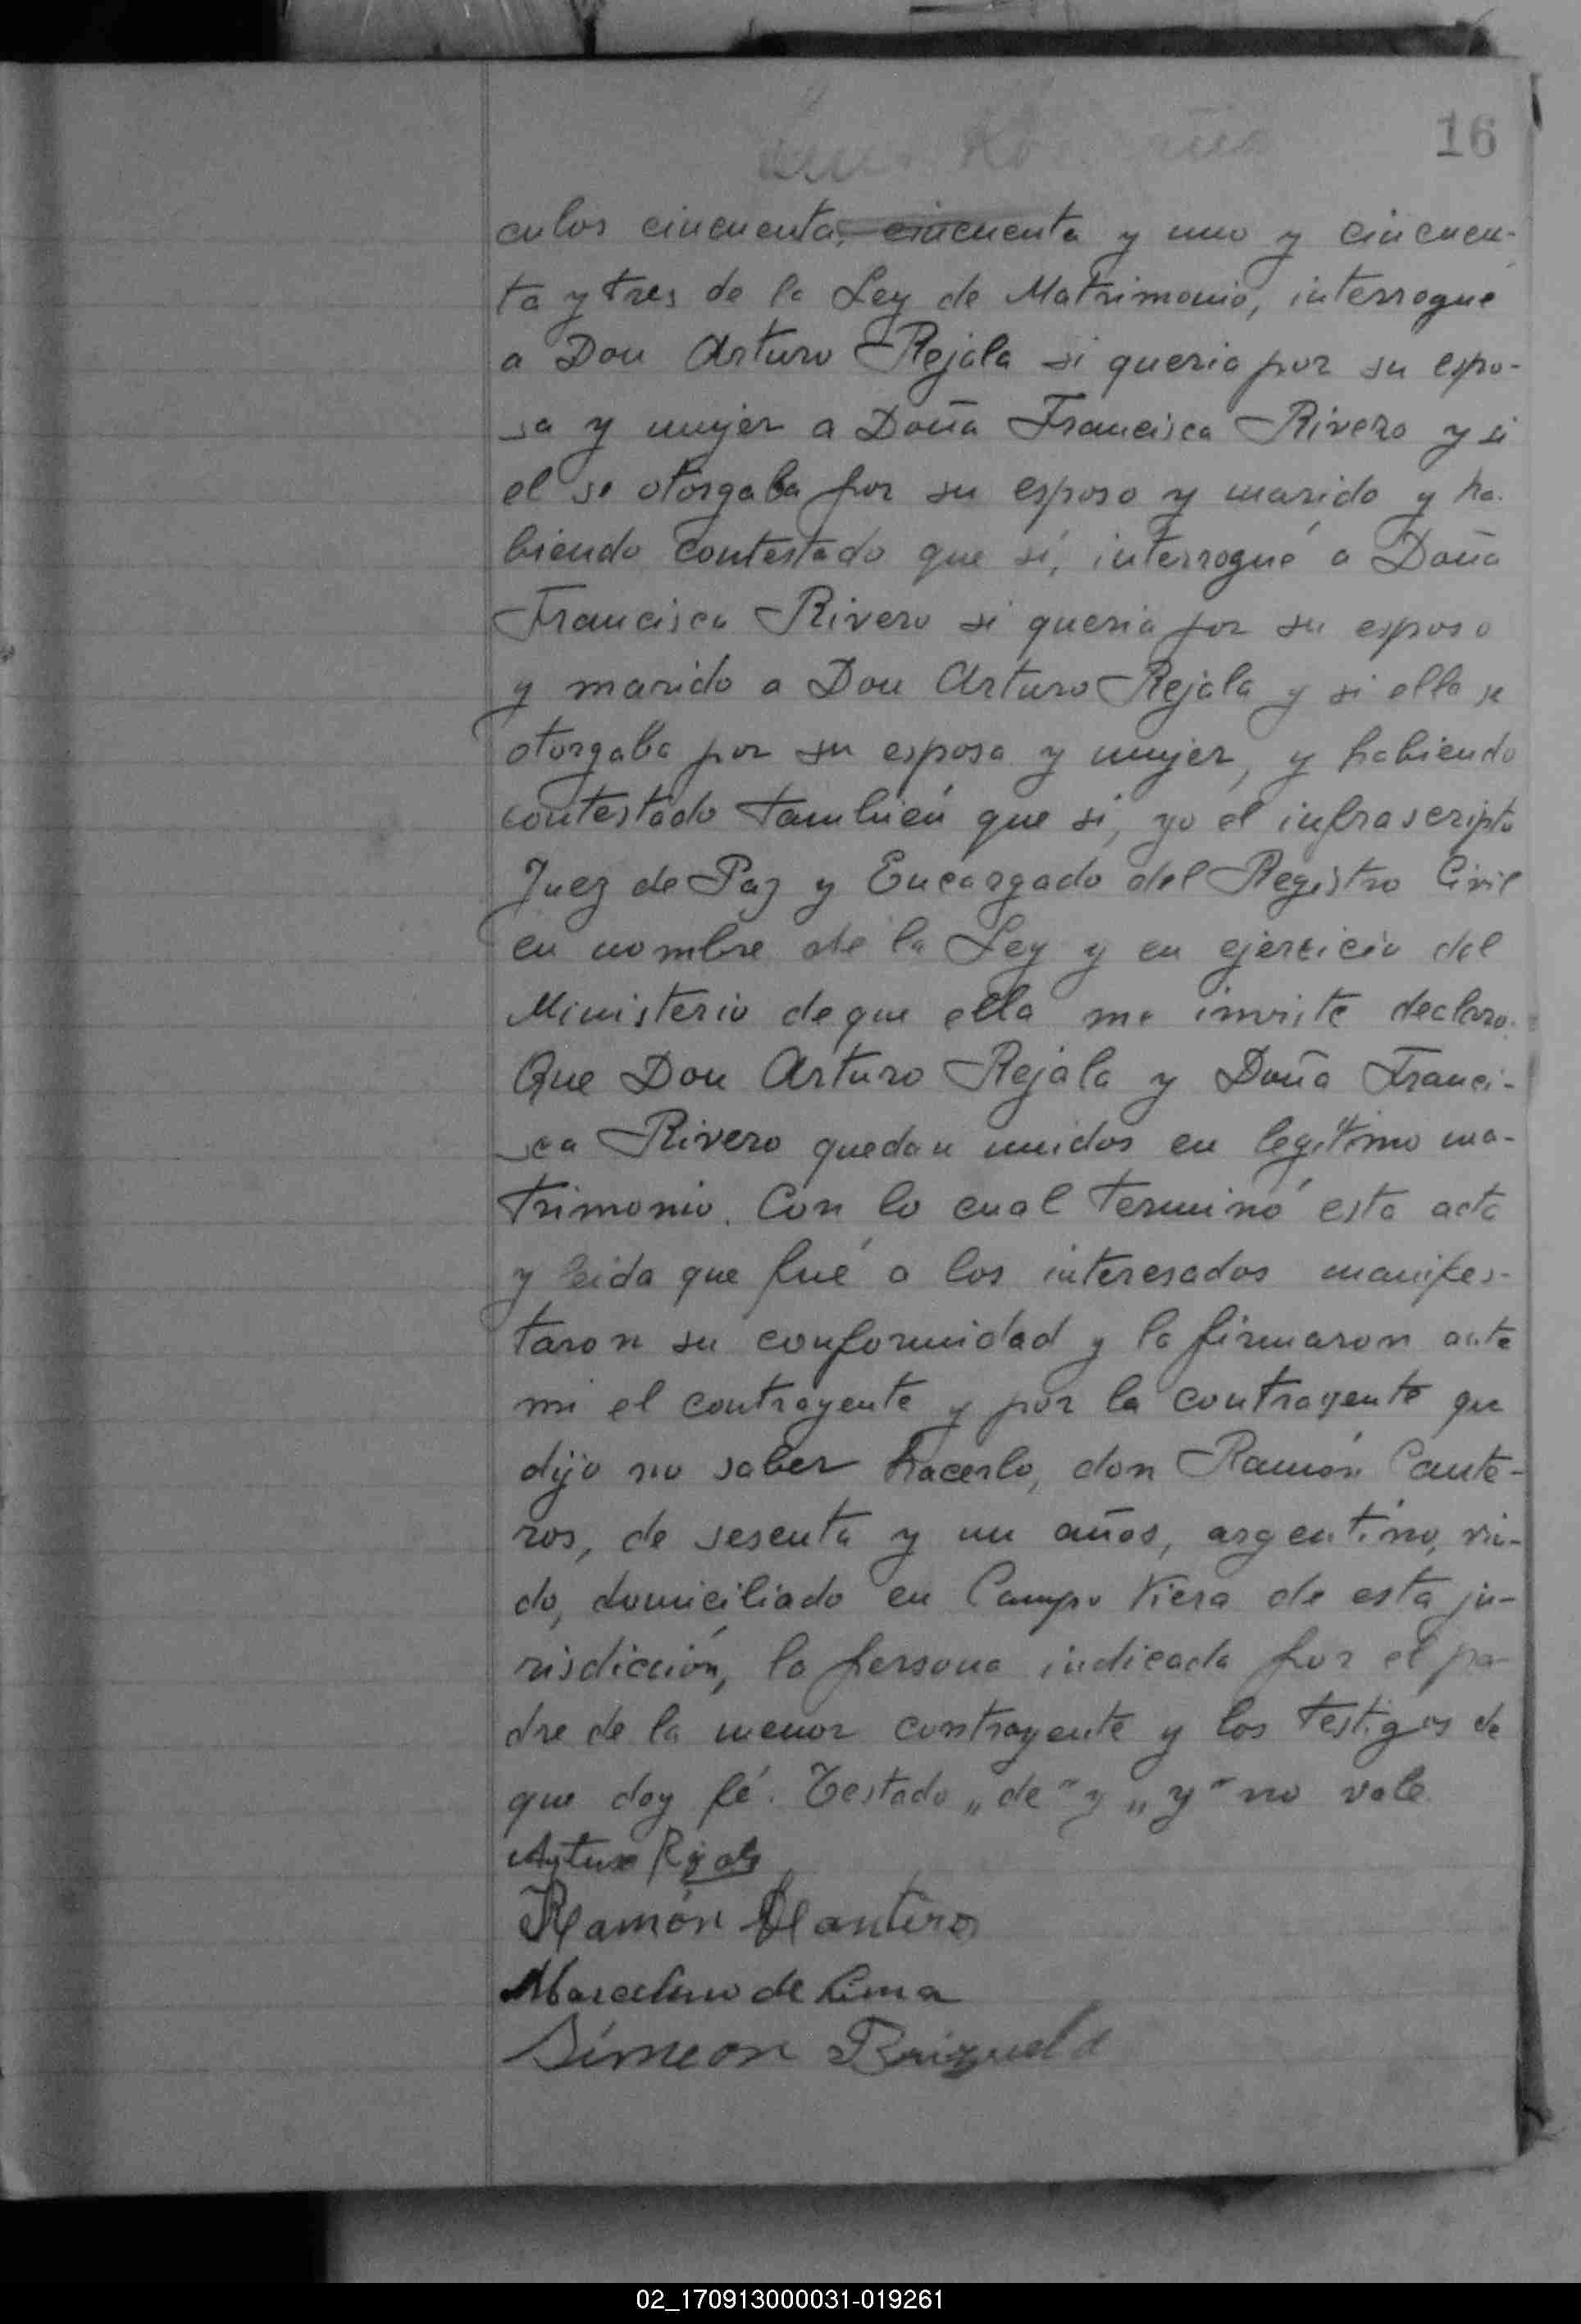 16
culos cincuenta, cincuenta y uno y cincuen-
ta y tres de la Ley de Matrimonio, interrogué
a Don Arturo Rejala si queria por su espo-
sa y mujer a Doña Francisca Rivero y si
el se otorgaba por su esposo y marido y ha-
biendo contestado que sí, interrogué a Doña
Francisca Rivero si queria por su esposo
y marido a Don Arturo Rejala y si ella se
otorgaba por su esposa y mujer, y habiendo
contestado también que si, yo el infrascripto
Juez de Paz y Encargado del Registro Civil
en nombre de la Ley y en ejercicio del
Ministerio de que ella me inviste declaro.
Que Don Arturo Rejala y Doña Franci-
sca Rivero quedan unidos en legítimo ma-
trimonio. Con lo cual terminó esta acta
y leida que fué a los interesados manifes-
taron su conformidad y la firmaron ante
mi el contrayente y por la contrayente que
dijo no saber hacerlo, don Ramón Cante-
ros, de sesenta y un años, argentino, viu-
do, domiciliado en Campo Viera de esta ju-
risdicción, la persona indicada por el pa-
dre de la menor contrayente y los testigos de
que doy fé. Testado „de" y „y" no vale.
Arturo Rejala
Ramón Canteros
Marcelino de Lima
Simeon Brizuela
02_170913000031-019261